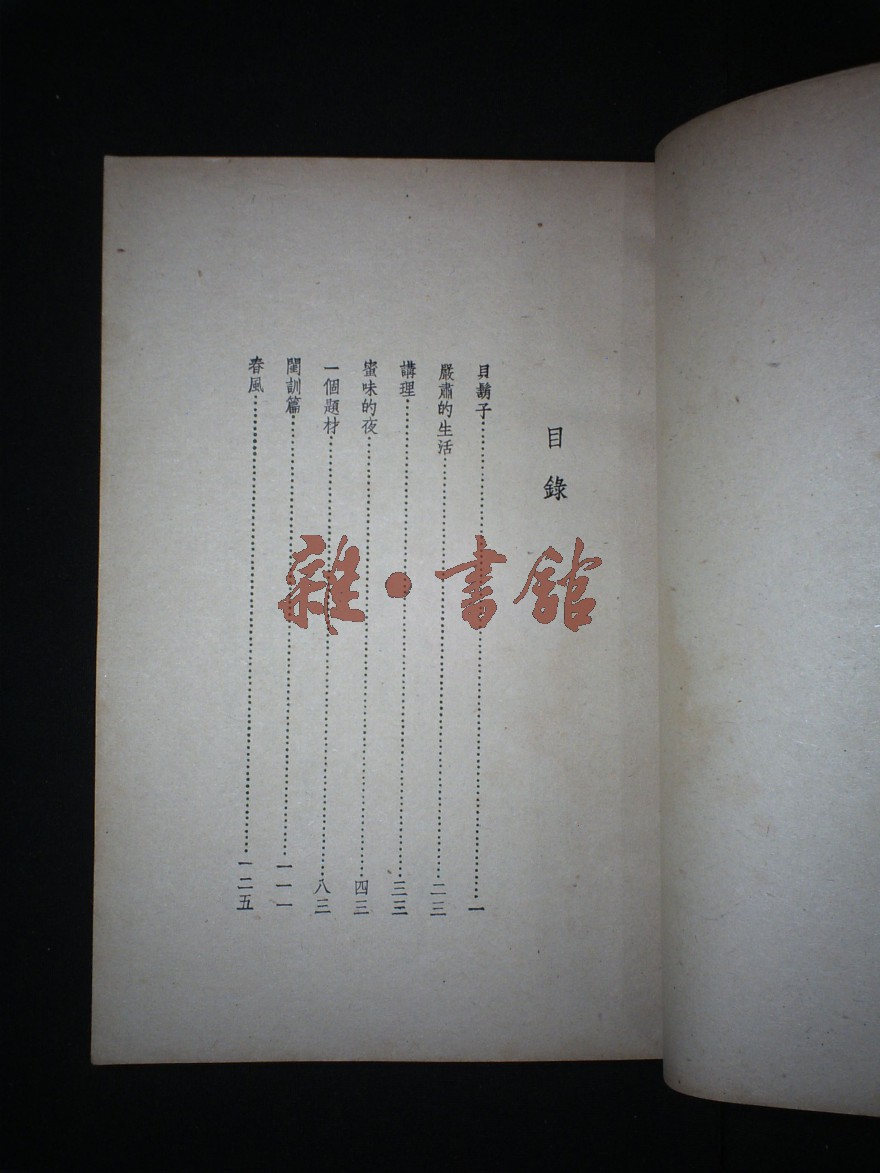 目錄
貝鬍子……一
嚴肅的生活……二三
講理……三三
蜜味的夜……四三
一個題材……八三
閨訓篇……一一一
春風……一二五
雜·書館